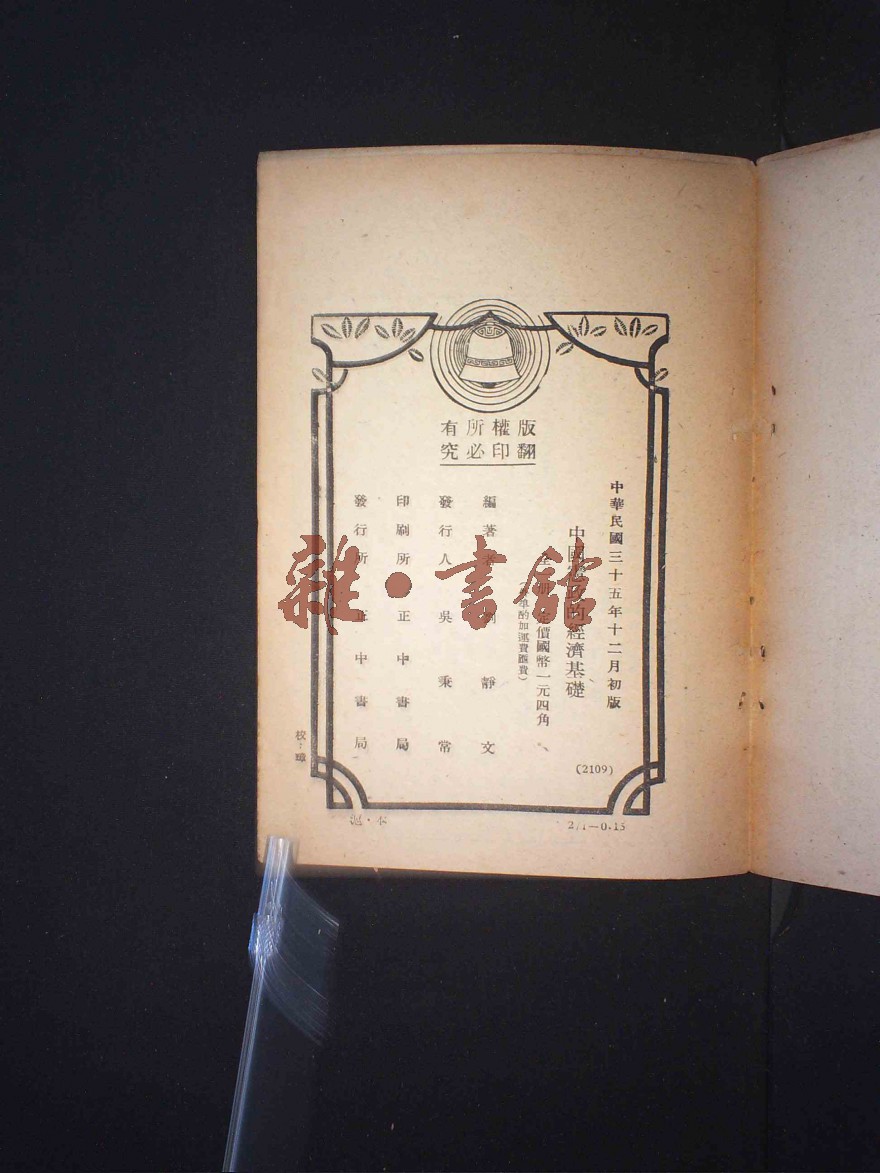 版權所有
翻印必究
中華民國三十五年十二月初版
中國憲政的經濟基礎
全一冊 定價國幣一元四角
酌加運費匯費)
編著者 劉靜文
發行人 吳秉常
印刷所 正中書局
發行所 正中書局
(2109)
校:璋
滬·本
2/1—0.15
雜·書館